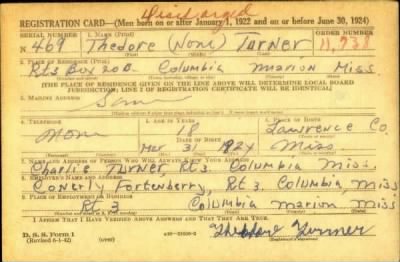 Discharged
REGISTRATION CARD—(Men born on or after January 1, 1922 and on or before June 30, 1924)
SERIAL NUMBER 1. NAME (Print) ORDER NUMBER
N 469 Thedore (None) Turner 11,738
(First) (Middle) (Last)
2. PLACE OF RESIDENCE (Print)
Rt 3 Box 20B. Columbia Marion Miss
[THE PLACE OF RESIDENCE GIVEN ON THE LINE ABOVE WILL DETERMINE LOCAL BOARD
JURISDICTION; LINE 2 OF REGISTRATION CERTIFICATE WILL BE IDENTICAL]
3. MAILING ADDRESS
Same
4. TELEPHONE 5. AGE IN YEARS 6. PLACE OF BIRTH
None 18 Lawrence Co.
DATE OF BIRTH
Mar 31 1924 Miss
7. NAME AND ADDRESS OF PERSON WHO WILL ALWAYS KNOW YOUR ADDRESS
Charlie Turner, Rt 3. Columbia Miss.
8. EMPLOYER'S NAME AND ADDRESS
Conerly Fortenberry, Rt 3, Columbia, Miss
9. PLACE OF EMPLOYMENT OR BUSINESS
Rt 3 Columbia Marion Miss
I AFFIRM THAT I HAVE VERIFIED ABOVE ANSWERS AND THAT THEY ARE TRUE.
D. S. S. Form 1
(Revised 6-1-42) (over) Theodore Turner